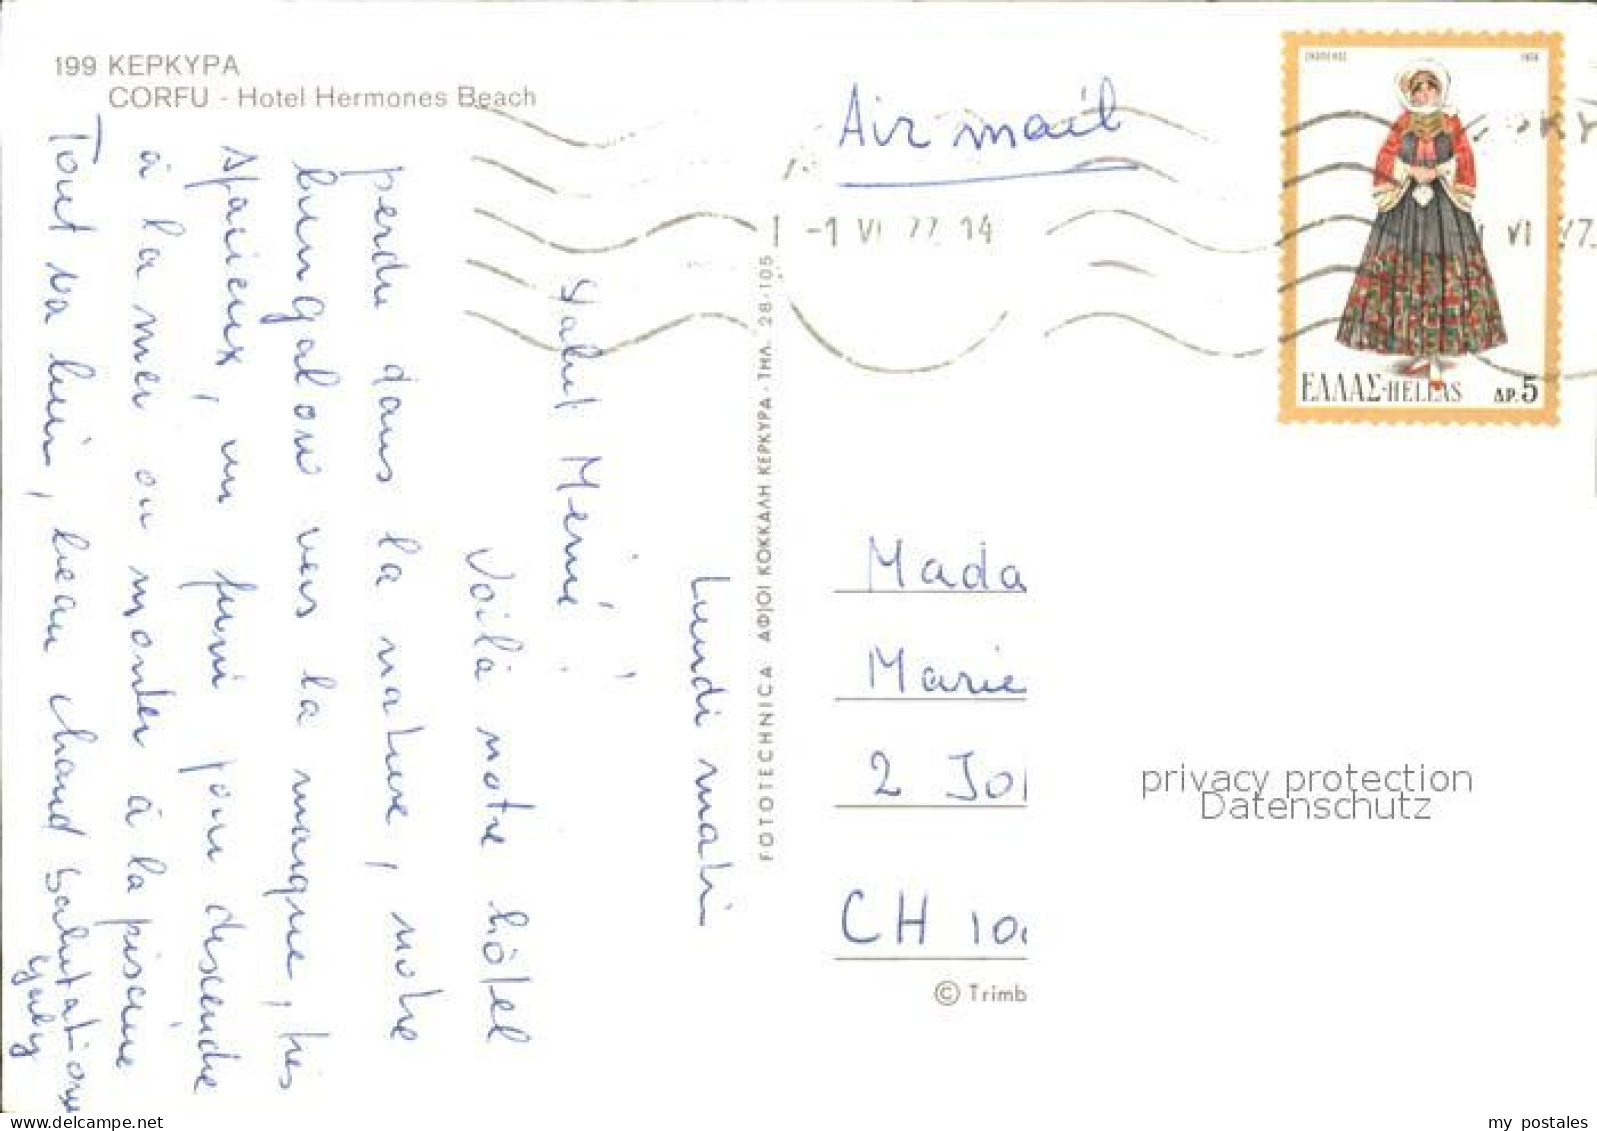 199 ΚΕΡΚΥΡΑ
CORFU - Hotel Hermones Beach
Air mail
-1 VI 77 14
VI 77
ΕΛΛΑΣ-HELLAS ΔΡ.5
Lundi matin
Salut Mémé !
Voilà notre hôtel
perdu dans la nature, notre
bungalow vers la marque, très
spacieux, un funi pour descendre
à la mer ou monter à la piscine
Tout va bien, beau chaud Salutations
FOTOTECHNICA ΑΦ|ΟΙ ΚΟΚΚΑΛΗ ΚΕΡΚΥΡΑ - ΤΗΛ. 28-105
Mada
Marie
2 Jo
CH 10
© Trimb
privacy protection
Datenschutz
my postales